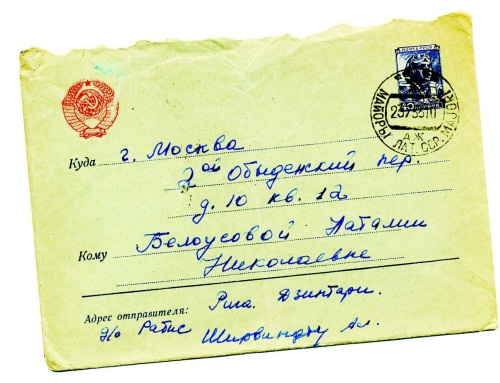 ПОЧТА СССР
МАЙОРИ ЛАТ. ССР.
23755 10
АЖ
Куда г. Москва
3ой Обыденский пер.
д. 10 кв. 12
Кому Белоусовой Наталии
Николаевне
Адрес отправителя: Рига. Дзинтари.
д/о Рабис Ширвиндту Ал.